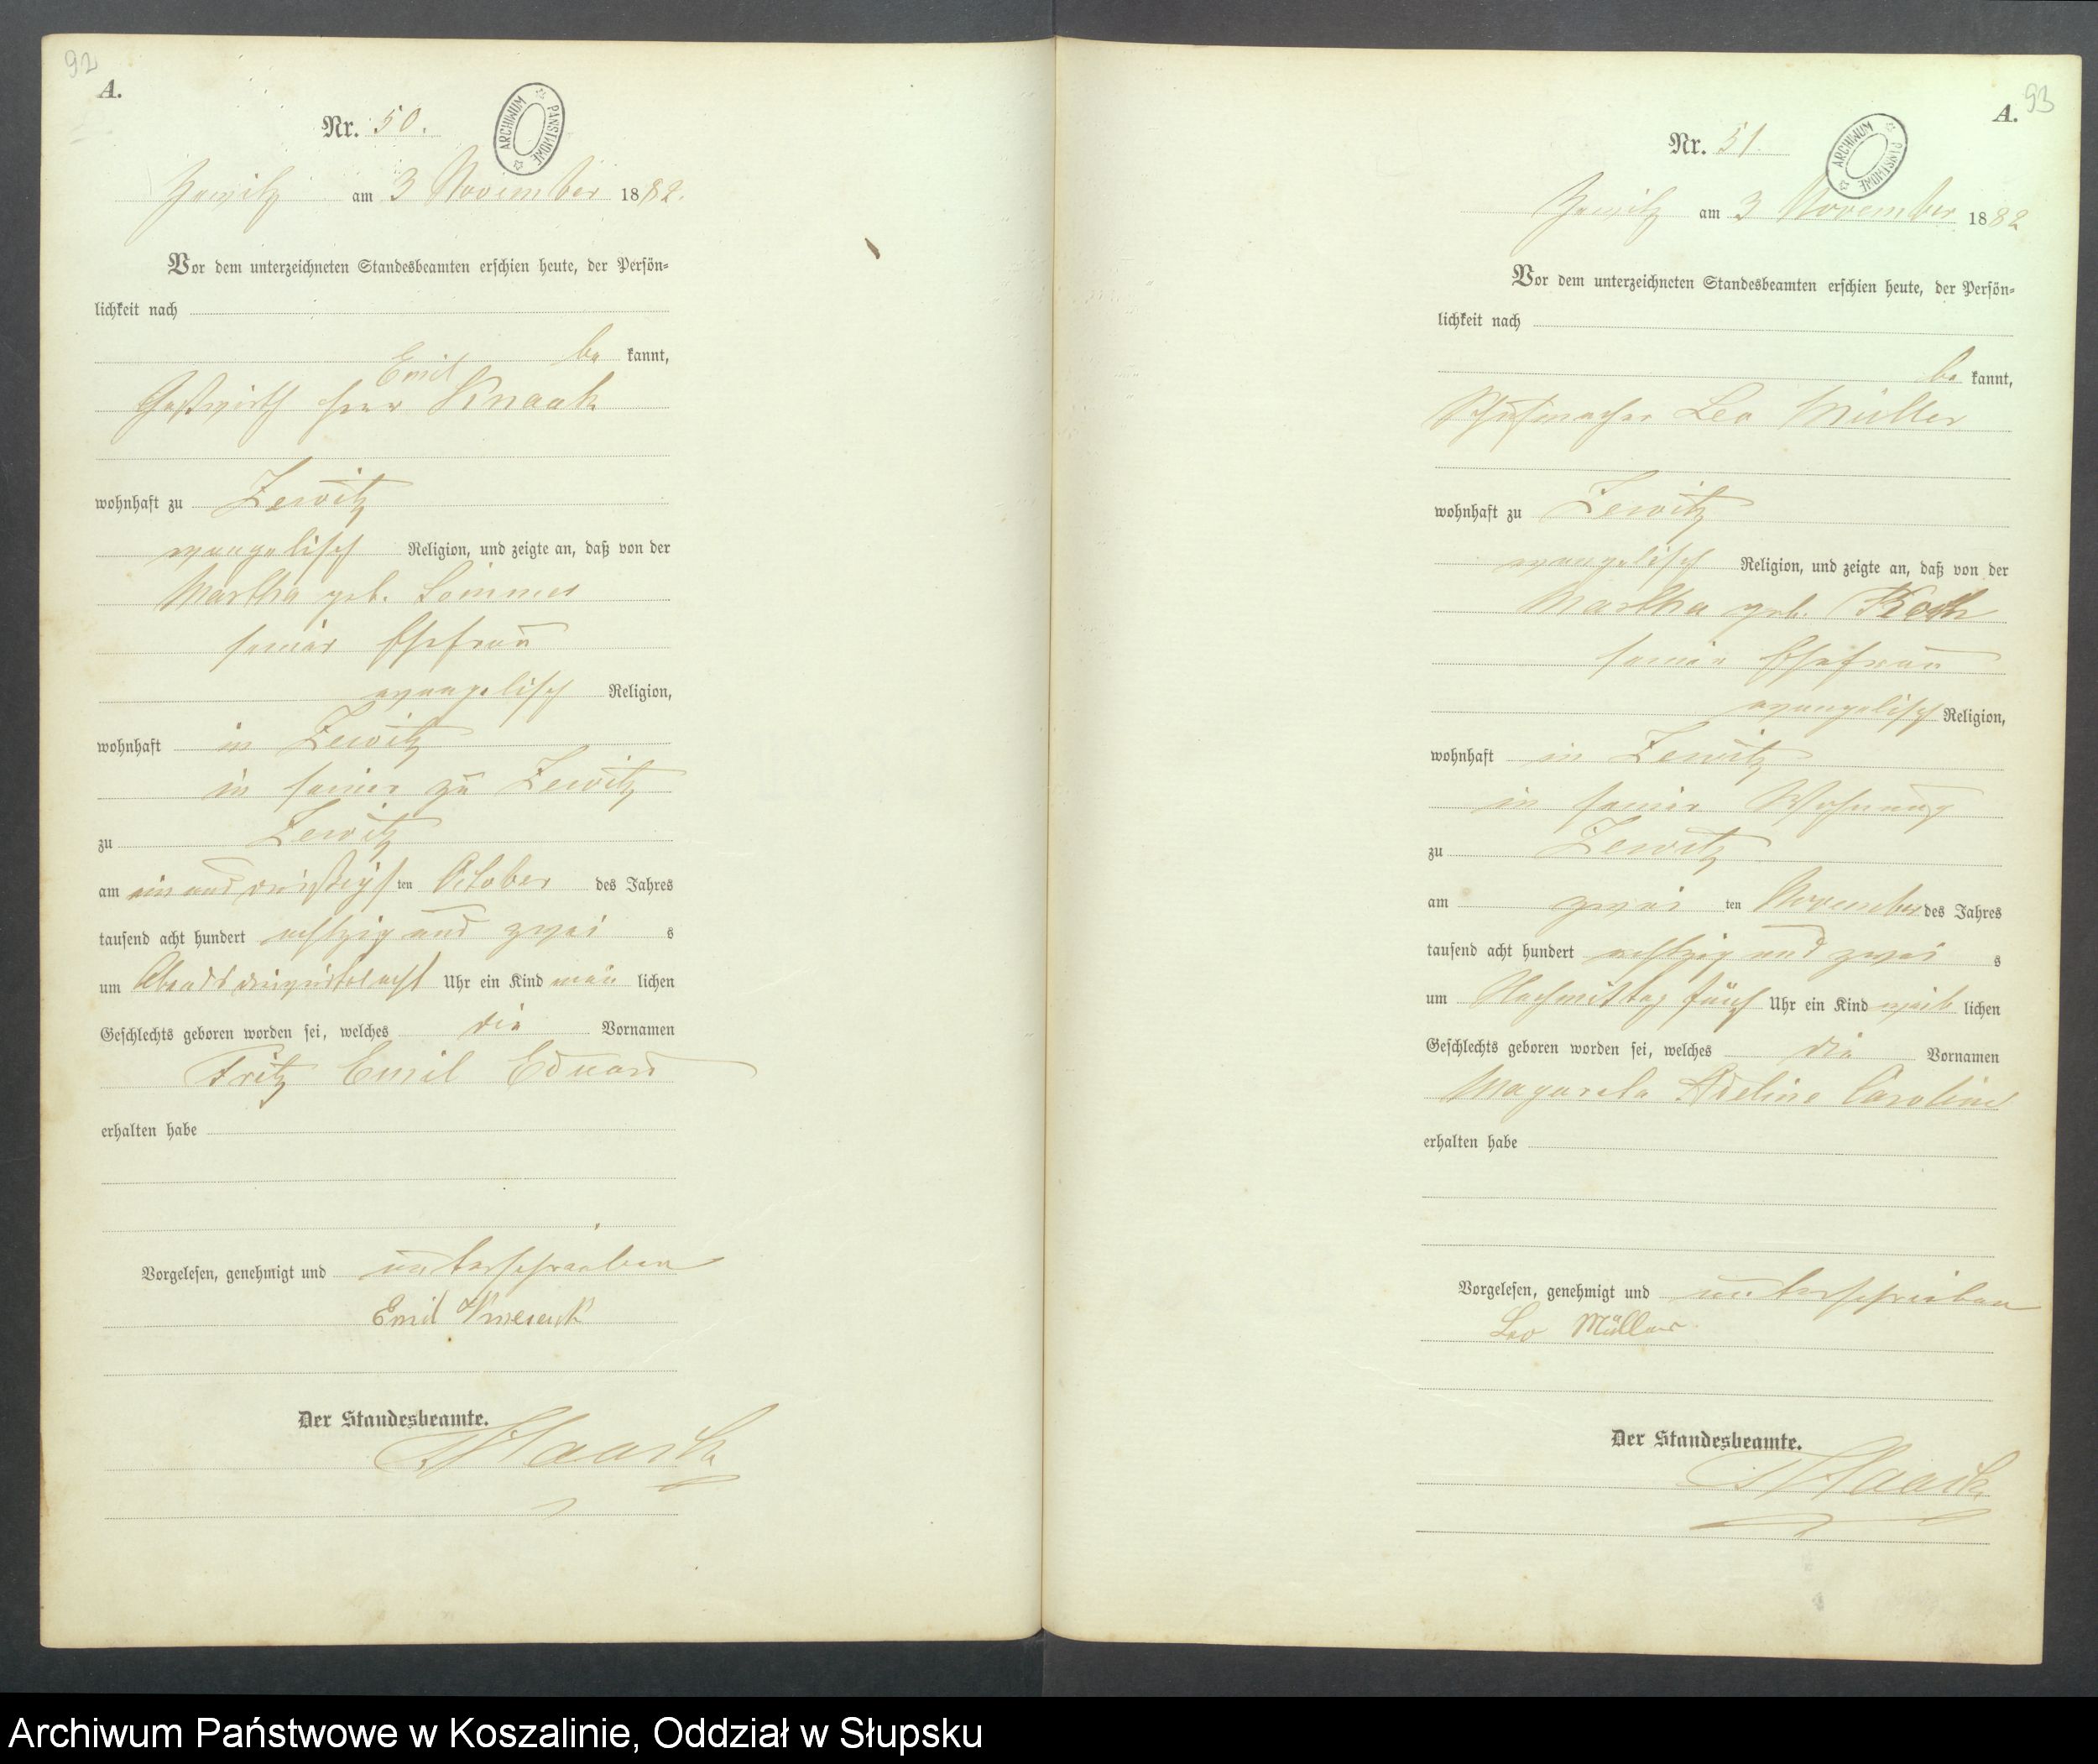 92
A.
Nr. 50.
ARCHIWUM PAŃSTWOWE
Zewitz am 3 November 1882.
Vor dem unterzeichneten Standesbeamten erschien heute, der Persön-
lichkeit nach
be kannt,
Emil
Gastwirth Herr Knaak
wohnhaft zu Zewitz
evangelisch Religion, und zeigte an, daß von der
Martha geb.
seiner Ehefrau
evangelisch Religion,
wohnhaft in Zewitz
in seiner zu Zewitz
zu Zewitz
am ein und dreißigsten October des Jahres
tausend acht hundert achtzig und zwei s
um Abends dreiviertel acht Uhr ein Kind män lichen
Geschlechts geboren worden sei, welches die Vornamen
Fritz Emil Eduard
erhalten habe
Vorgelesen, genehmigt und unterschrieben
Emil Knaack
Der Standesbeamte.
93
A.
Nr. 51.
ARCHIWUM PAŃSTWOWE
Zewitz am 3 November 1882
Vor dem unterzeichneten Standesbeamten erschien heute, der Persön-
lichkeit nach
be kannt,
Schuhmacher Leo Müller
wohnhaft zu Zewitz
evangelisch Religion, und zeigte an, daß von der
Martha geb. Koch
seiner Ehefrau
evangelisch Religion,
wohnhaft in Zewitz
in seiner Wohnung
zu Zewitz
am zwei ten November des Jahres
tausend acht hundert achtzig und zwei s
um Nachmittag fünf Uhr ein Kind weib lichen
Geschlechts geboren worden sei, welches die Vornamen
Magareta Adeline Caroline
erhalten habe
Vorgelesen, genehmigt und unterschrieben
Leo Müller
Der Standesbeamte.
Archiwum Państwowe w Koszalinie, Oddział w Słupsku